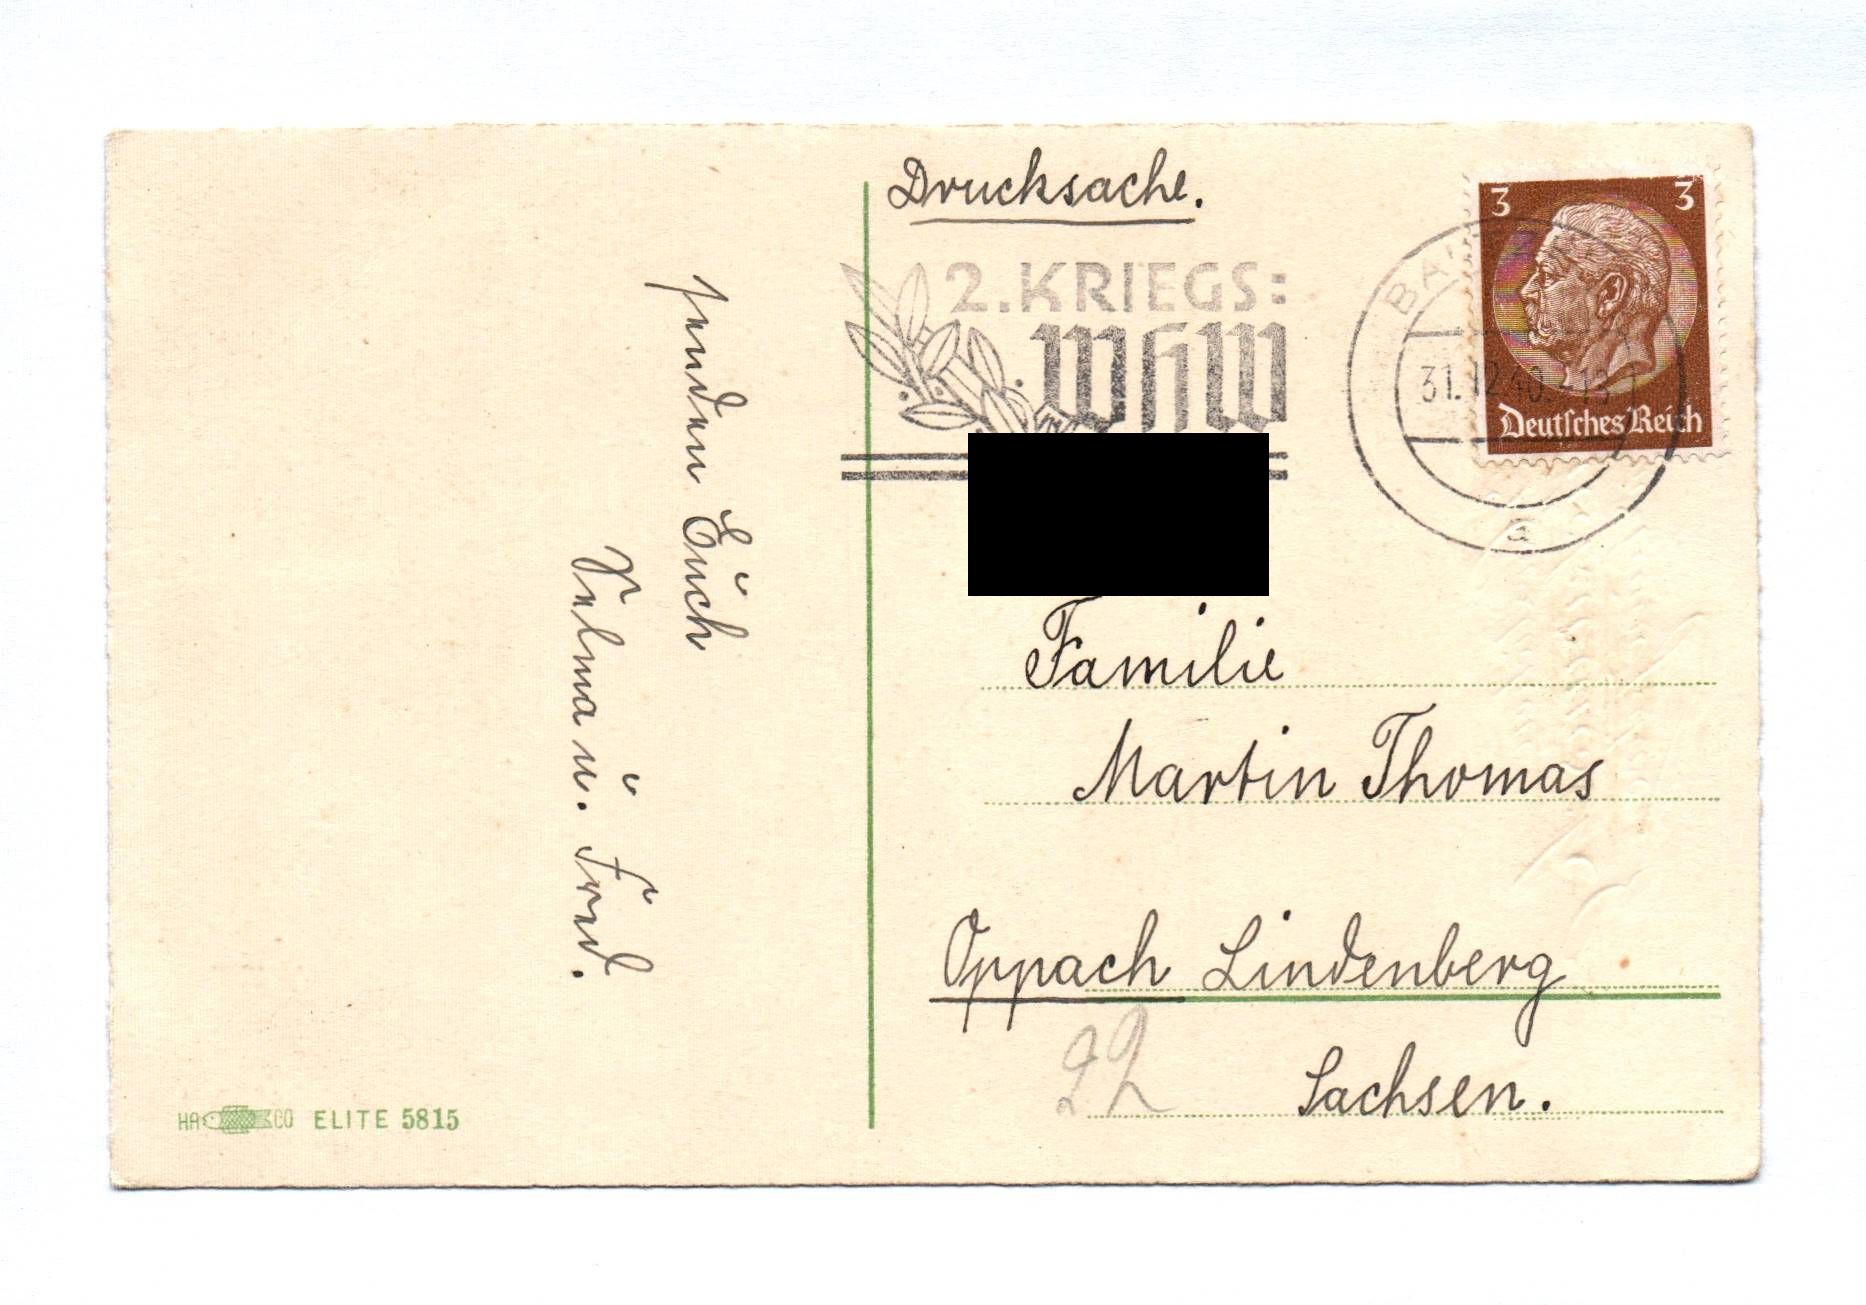 Drucksache.
2. KRIEGS:
WHW
3 3
Deutsches Reich
31.12.40.-13
a
senden Euch
Selma u. Fred.
Familie
Martin Thomas
Oppach Lindenberg
22
Sachsen.
HA CO ELITE 5815